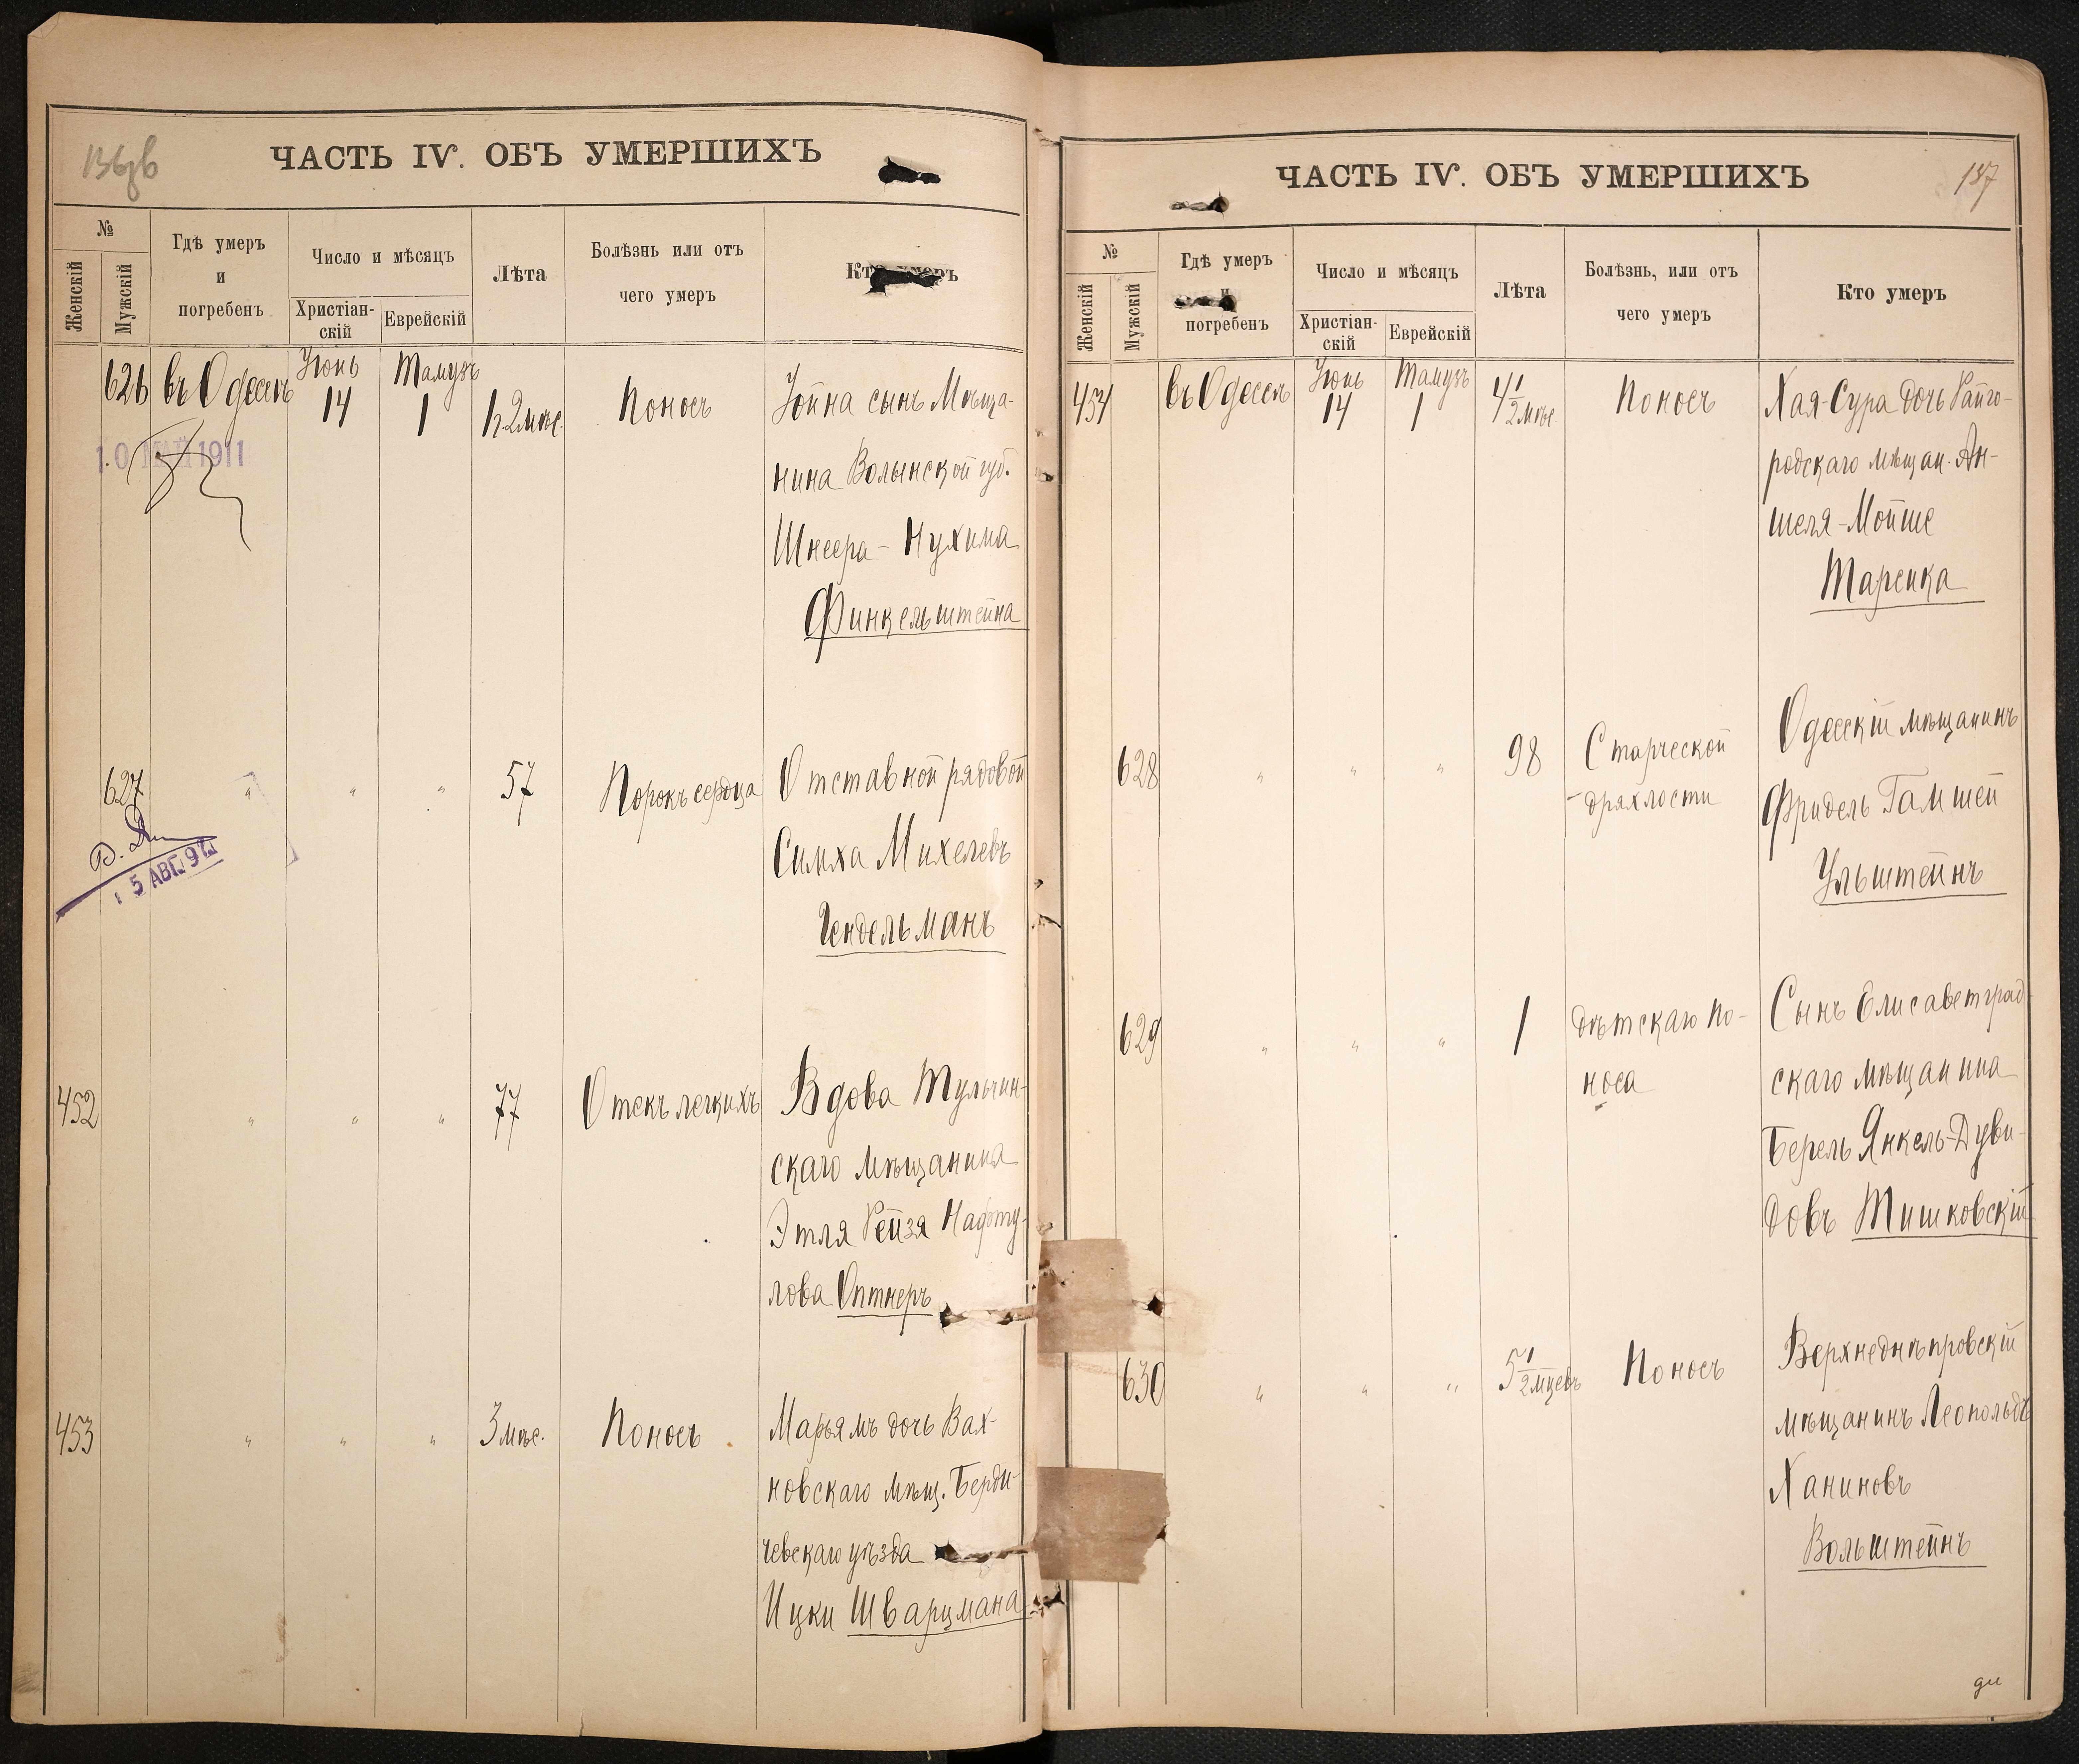 ЧАСТЬ IV. ОБЪ УМЕРШИХЪ
№
Женскій
Мужскій
Гдѣ умеръ
и
погребенъ
Число и мѣсяцъ
Христіан-
скій
Еврейскій
Лѣта
Болѣзнь или отъ
чего умеръ
Кто умеръ
626 въ Одессѣ Іюнь 14 Тамузъ 1 Поносъ
Іойна сынъ Мѣща-
нина Волынской губ.
Шнеера-Нухима
Финкельштейна
10 МАЙ 1911
627 " " " 57 Порокъ сердца
Отставной рядовой
Симха Михелевъ
Гендельманъ
5 АВГ. 92
452 " " " 77 Отекъ легкихъ
Вдова Тульчин-
скаго мѣщанина
Этля Рейзя Нафту-
лова Оптнеръ
453 " " " 3 мѣс. Поносъ
Марьямъ дочь Вах-
новскаго мѣщ. Берди-
чевскаго уѣзда
Ицки Шварцмана
ЧАСТЬ IV. ОБЪ УМЕРШИХЪ
137
№
Женскій
Мужскій
Гдѣ умеръ
и
погребенъ
Число и мѣсяцъ
Христіан-
скій
Еврейскій
Лѣта
Болѣзнь, или отъ
чего умеръ
Кто умеръ
454 въ Одессѣ Іюнь 14 Тамузъ 1 4 1/2 мѣс. Поносъ
Хая-Сура дочь Райго-
родскаго мѣщан. Ан-
шеля-Мойше
Таренка
628 " " " 98 Старческой
дряхлости
Одесскій мѣщанинъ
Фридель Гамшей
Ульштейнъ
629 " " " 1 дѣтскаго по-
носа
Сынъ Елисаветград-
скаго мѣщанина
Берель Янкель-Дуви-
довъ Тишковскій
630 " " " 5 1/2 мцевъ Поносъ
Верхнеднѣпровскій
мѣщанинъ Леопольдъ
Ханиновъ
Вольштейнъ